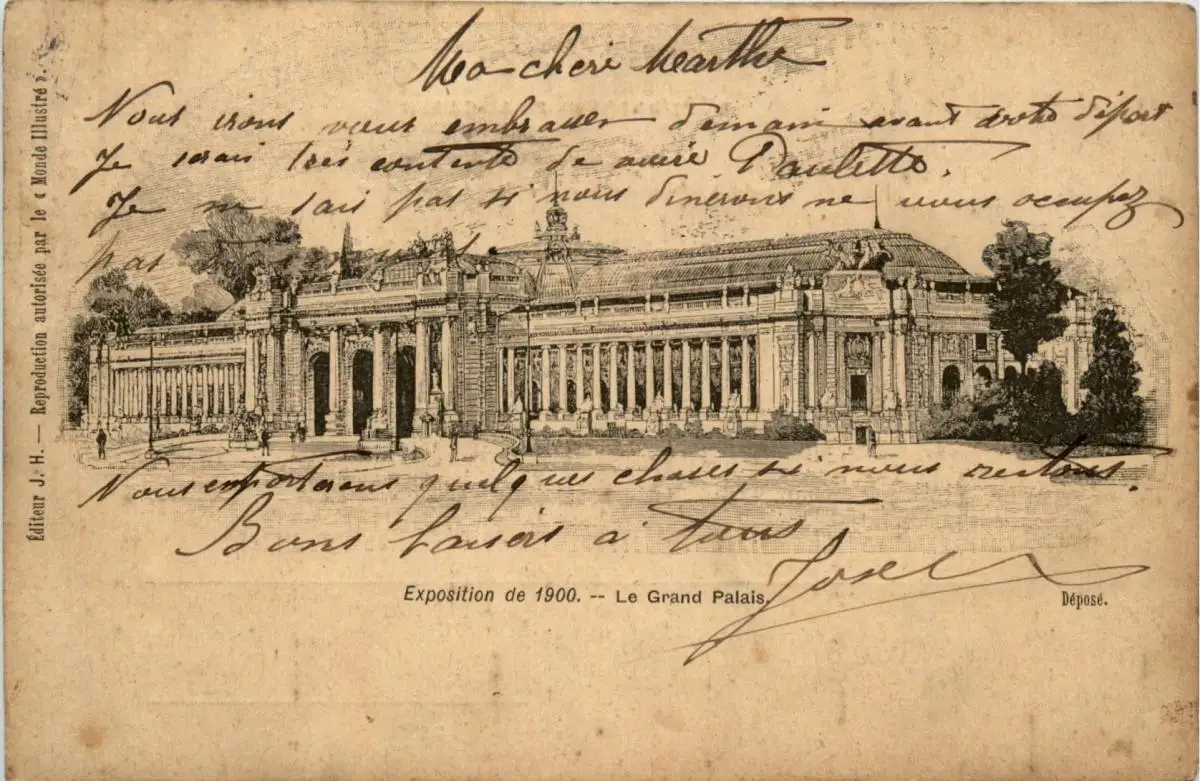 Ma chere Marthe
Nous irons vous embrasser demain avant votre départ
Je serais très contente de voire Paulette.
Je ne sais pas si nous dinerons ne vous occupez
pas
Nous emporterons quelques choses si nous restons.
Bons baisers à tous
Exposition de 1900. -- Le Grand Palais.
Déposé.
Éditeur J. H. — Reproduction autorisée par le « Monde Illustré ».